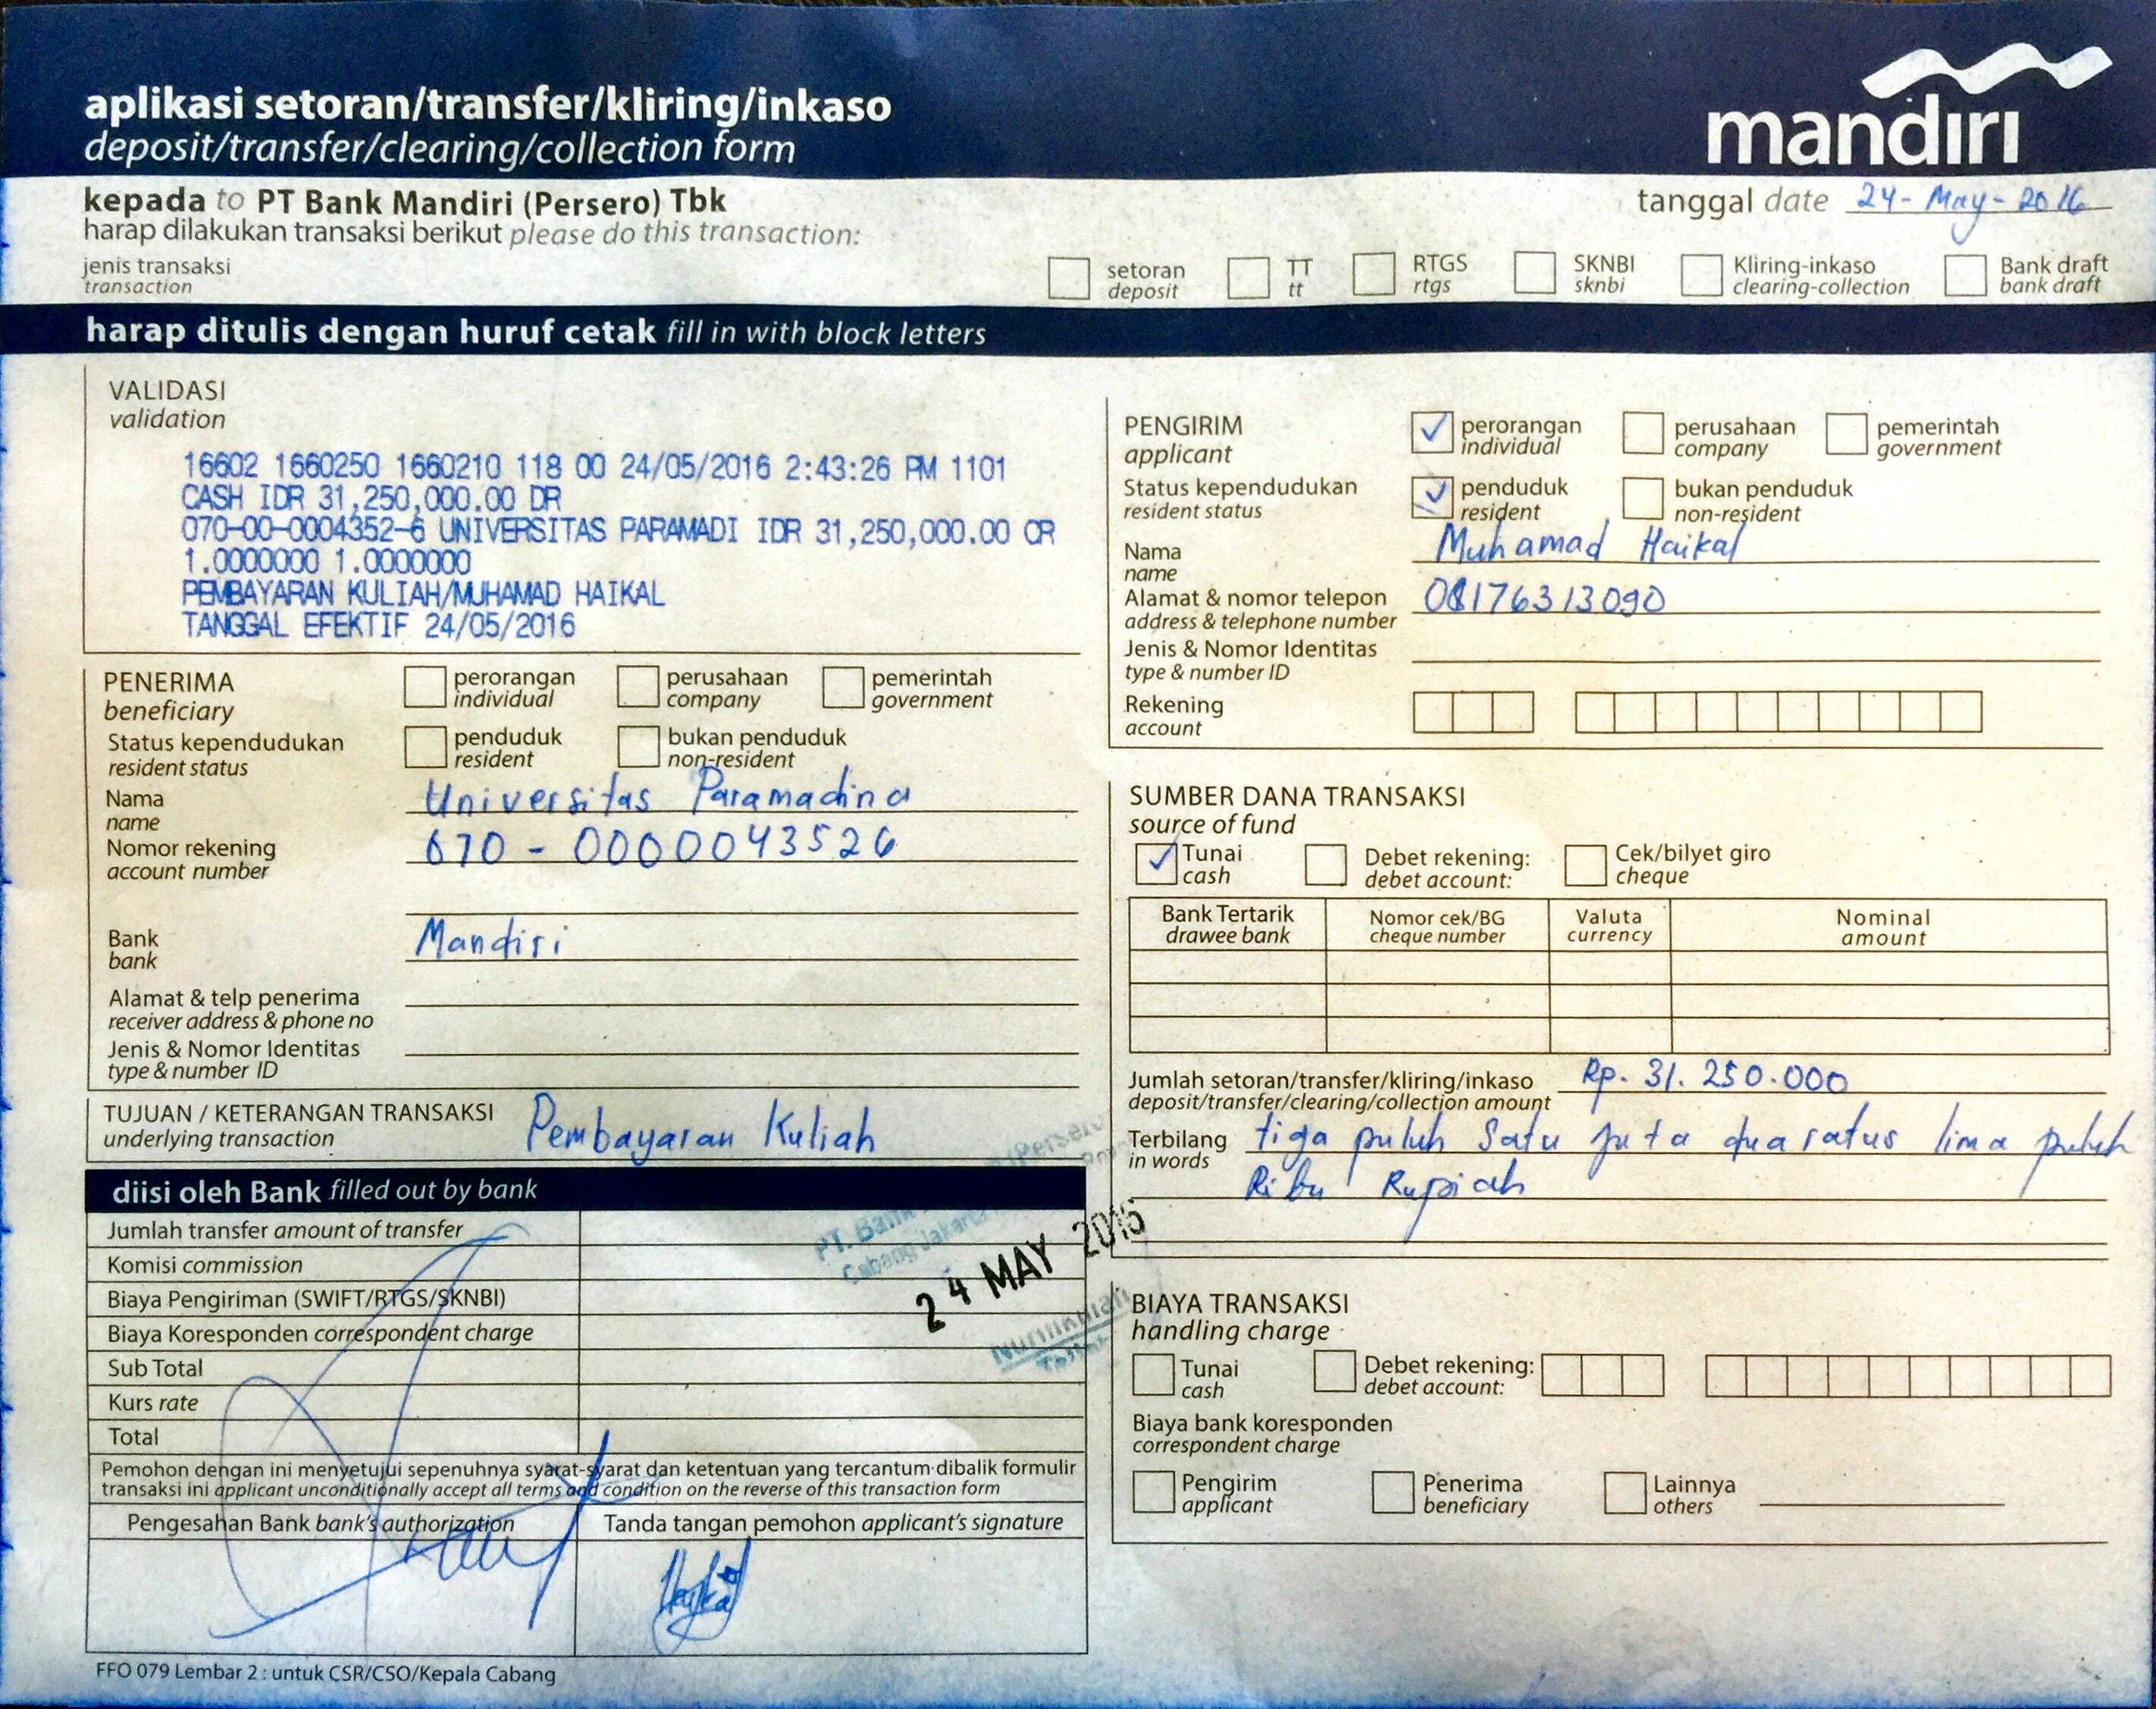 aplikasi setoran/transfer/kliring/inkaso
deposit/transfer/clearing/collection form
mandiri
kepada to PT Bank Mandiri (Persero) Tbk
tanggal date 24-May-2016
harap dilakukan transaksi berikut please do this transaction:
jenis transaksi
transaction
setoran
deposit
TT
tt
RTGS
rtgs
SKNBI
sknbi
Kliring-inkaso
clearing-collection
Bank draft
bank draft
harap ditulis dengan huruf cetak fill in with block letters
VALIDASI
validation
16602 1660250 1660210 118 00 24/05/2016 2:43:26 PM 1101
CASH IDR 31,250,000.00 DR
070-00-0004352-6 UNIVERSITAS PARAMADI IDR 31,250,000.00 CR
1.0000000 1.0000000
PEMBAYARAN KULIAH/MUHAMAD HAIKAL
TANGGAL EFEKTIF 24/05/2016
PENERIMA
beneficiary
perorangan
individual
perusahaan
company
pemerintah
government
Status kependudukan
resident status
penduduk
resident
bukan penduduk
non-resident
Nama
name
Universitas Paramadina
Nomor rekening
account number
070 - 0000043526
Bank
bank
Mandiri
Alamat & telp penerima
receiver address & phone no
Jenis & Nomor Identitas
type & number ID
TUJUAN / KETERANGAN TRANSAKSI
underlying transaction
Pembayaran Kuliah
diisi oleh Bank filled out by bank
Jumlah transfer amount of transfer
Komisi commission
Biaya Pengiriman (SWIFT/RTGS/SKNBI)
Biaya Koresponden correspondent charge
Sub Total
Kurs rate
Total
Pemohon dengan ini menyetujui sepenuhnya syarat-syarat dan ketentuan yang tercantum dibalik formulir
transaksi ini applicant unconditionally accept all terms and condition on the reverse of this transaction form
Pengesahan Bank bank's authorization
Tanda tangan pemohon applicant's signature
FFO 079 Lembar 2 : untuk CSR/CSO/Kepala Cabang
(Persero)
PT. Bank
Cabang Jakarta
24 MAY 2016
PENGIRIM
applicant
perorangan
individual
perusahaan
company
pemerintah
government
Status kependudukan
resident status
penduduk
resident
bukan penduduk
non-resident
Nama
name
Muhamad Haikal
Alamat & nomor telepon
address & telephone number
08176313090
Jenis & Nomor Identitas
type & number ID
Rekening
account
SUMBER DANA TRANSAKSI
source of fund
Tunai
cash
Debet rekening:
debet account:
Cek/bilyet giro
cheque
Bank Tertarik
drawee bank
Nomor cek/BG
cheque number
Valuta
currency
Nominal
amount
Jumlah setoran/transfer/kliring/inkaso
deposit/transfer/clearing/collection amount
Rp. 31.250.000
Terbilang
in words
tiga puluh Satu juta dua ratus lima puluh
Ribu Rupiah
BIAYA TRANSAKSI
handling charge
Tunai
cash
Debet rekening:
debet account:
Biaya bank koresponden
correspondent charge
Pengirim
applicant
Penerima
beneficiary
Lainnya
others